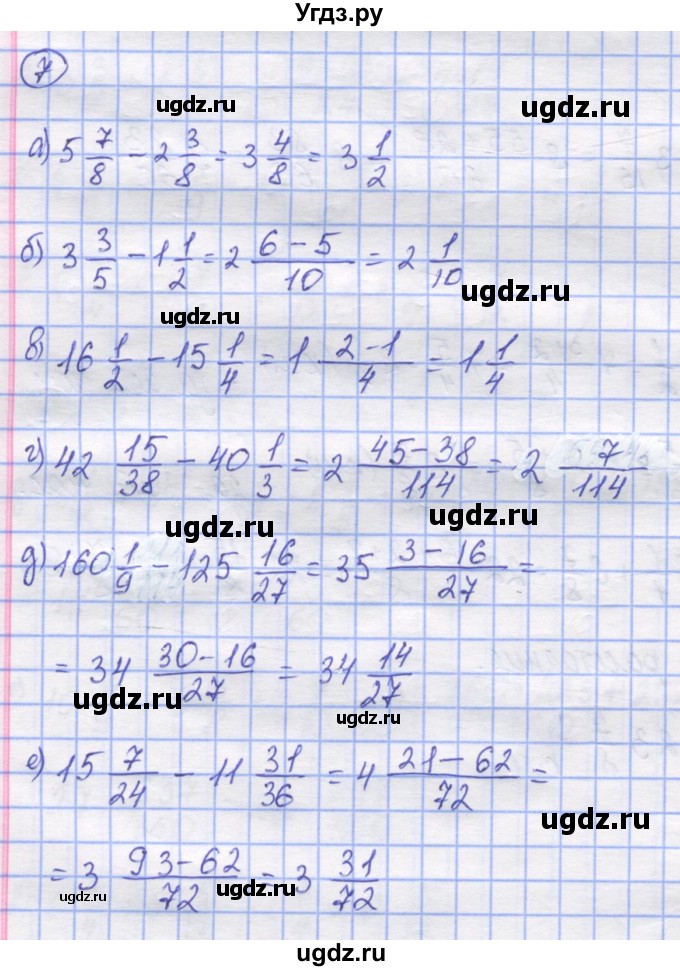 Угдз.ру
7
ugdz.ru
ugdz.ru
а) 5 7/8 − 2 3/8 = 3 4/8 = 3 1/2
б) 3 3/5 − 1 1/2 = 2 (6 − 5)/10 = 2 1/10
ugdz.ru
ugdz.ru
в) 16 1/2 − 15 1/4 = 1 (2 − 1)/4 = 1 1/4
г) 42 15/38 − 40 1/3 = 2 (45 − 38)/114 = 2 7/114
ugdz.ru
ugdz.ru
д) 160 1/9 − 125 16/27 = 35 (3 − 16)/27 =
= 34 (30 − 16)/27 = 34 14/27
ugdz.ru
ugdz.ru
е) 15 7/24 − 11 31/36 = 4 (21 − 62)/72 =
ugdz.ru
= 3 (93 − 62)/72 = 3 31/72
ugdz.ru
ugdz.ru
ugdz.ru